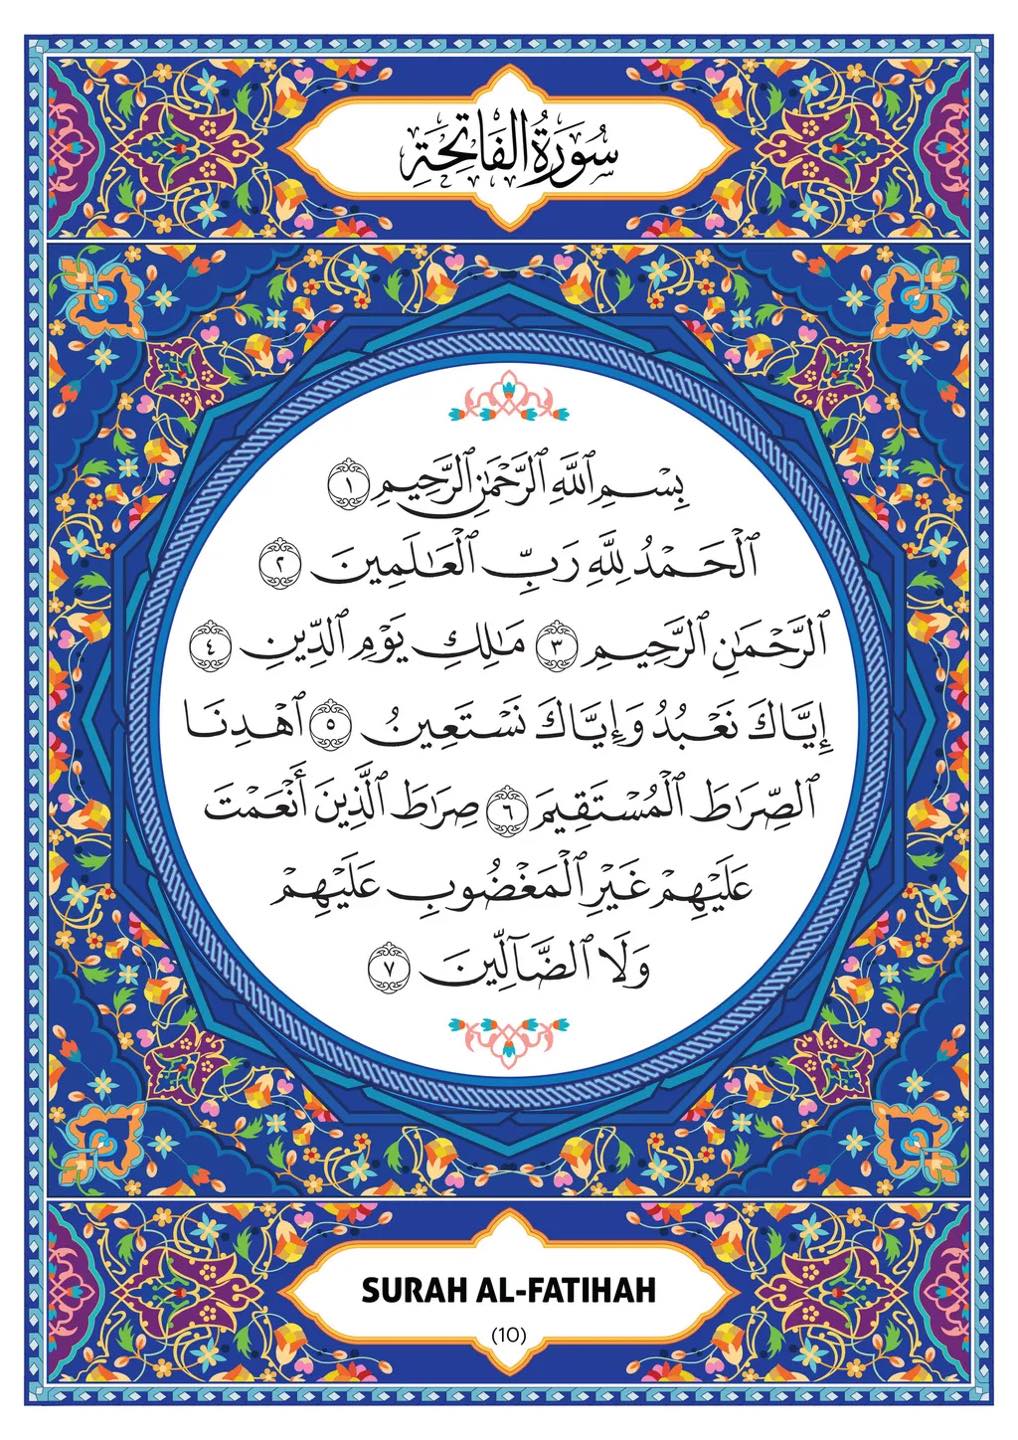 سُورَةُ الفَاتِحَةِ
بِسْمِ ٱللَّهِ ٱلرَّحْمَٰنِ ٱلرَّحِيمِ ١
ٱلْحَمْدُ لِلَّهِ رَبِّ ٱلْعَٰلَمِينَ ٢
ٱلرَّحْمَٰنِ ٱلرَّحِيمِ ٣ مَٰلِكِ يَوْمِ ٱلدِّينِ ٤
إِيَّاكَ نَعْبُدُ وَإِيَّاكَ نَسْتَعِينُ ٥ ٱهْدِنَا
ٱلصِّرَٰطَ ٱلْمُسْتَقِيمَ ٦ صِرَٰطَ ٱلَّذِينَ أَنْعَمْتَ
عَلَيْهِمْ غَيْرِ ٱلْمَغْضُوبِ عَلَيْهِمْ
وَلَا ٱلضَّآلِّينَ ٧
SURAH AL-FATIHAH
(10)